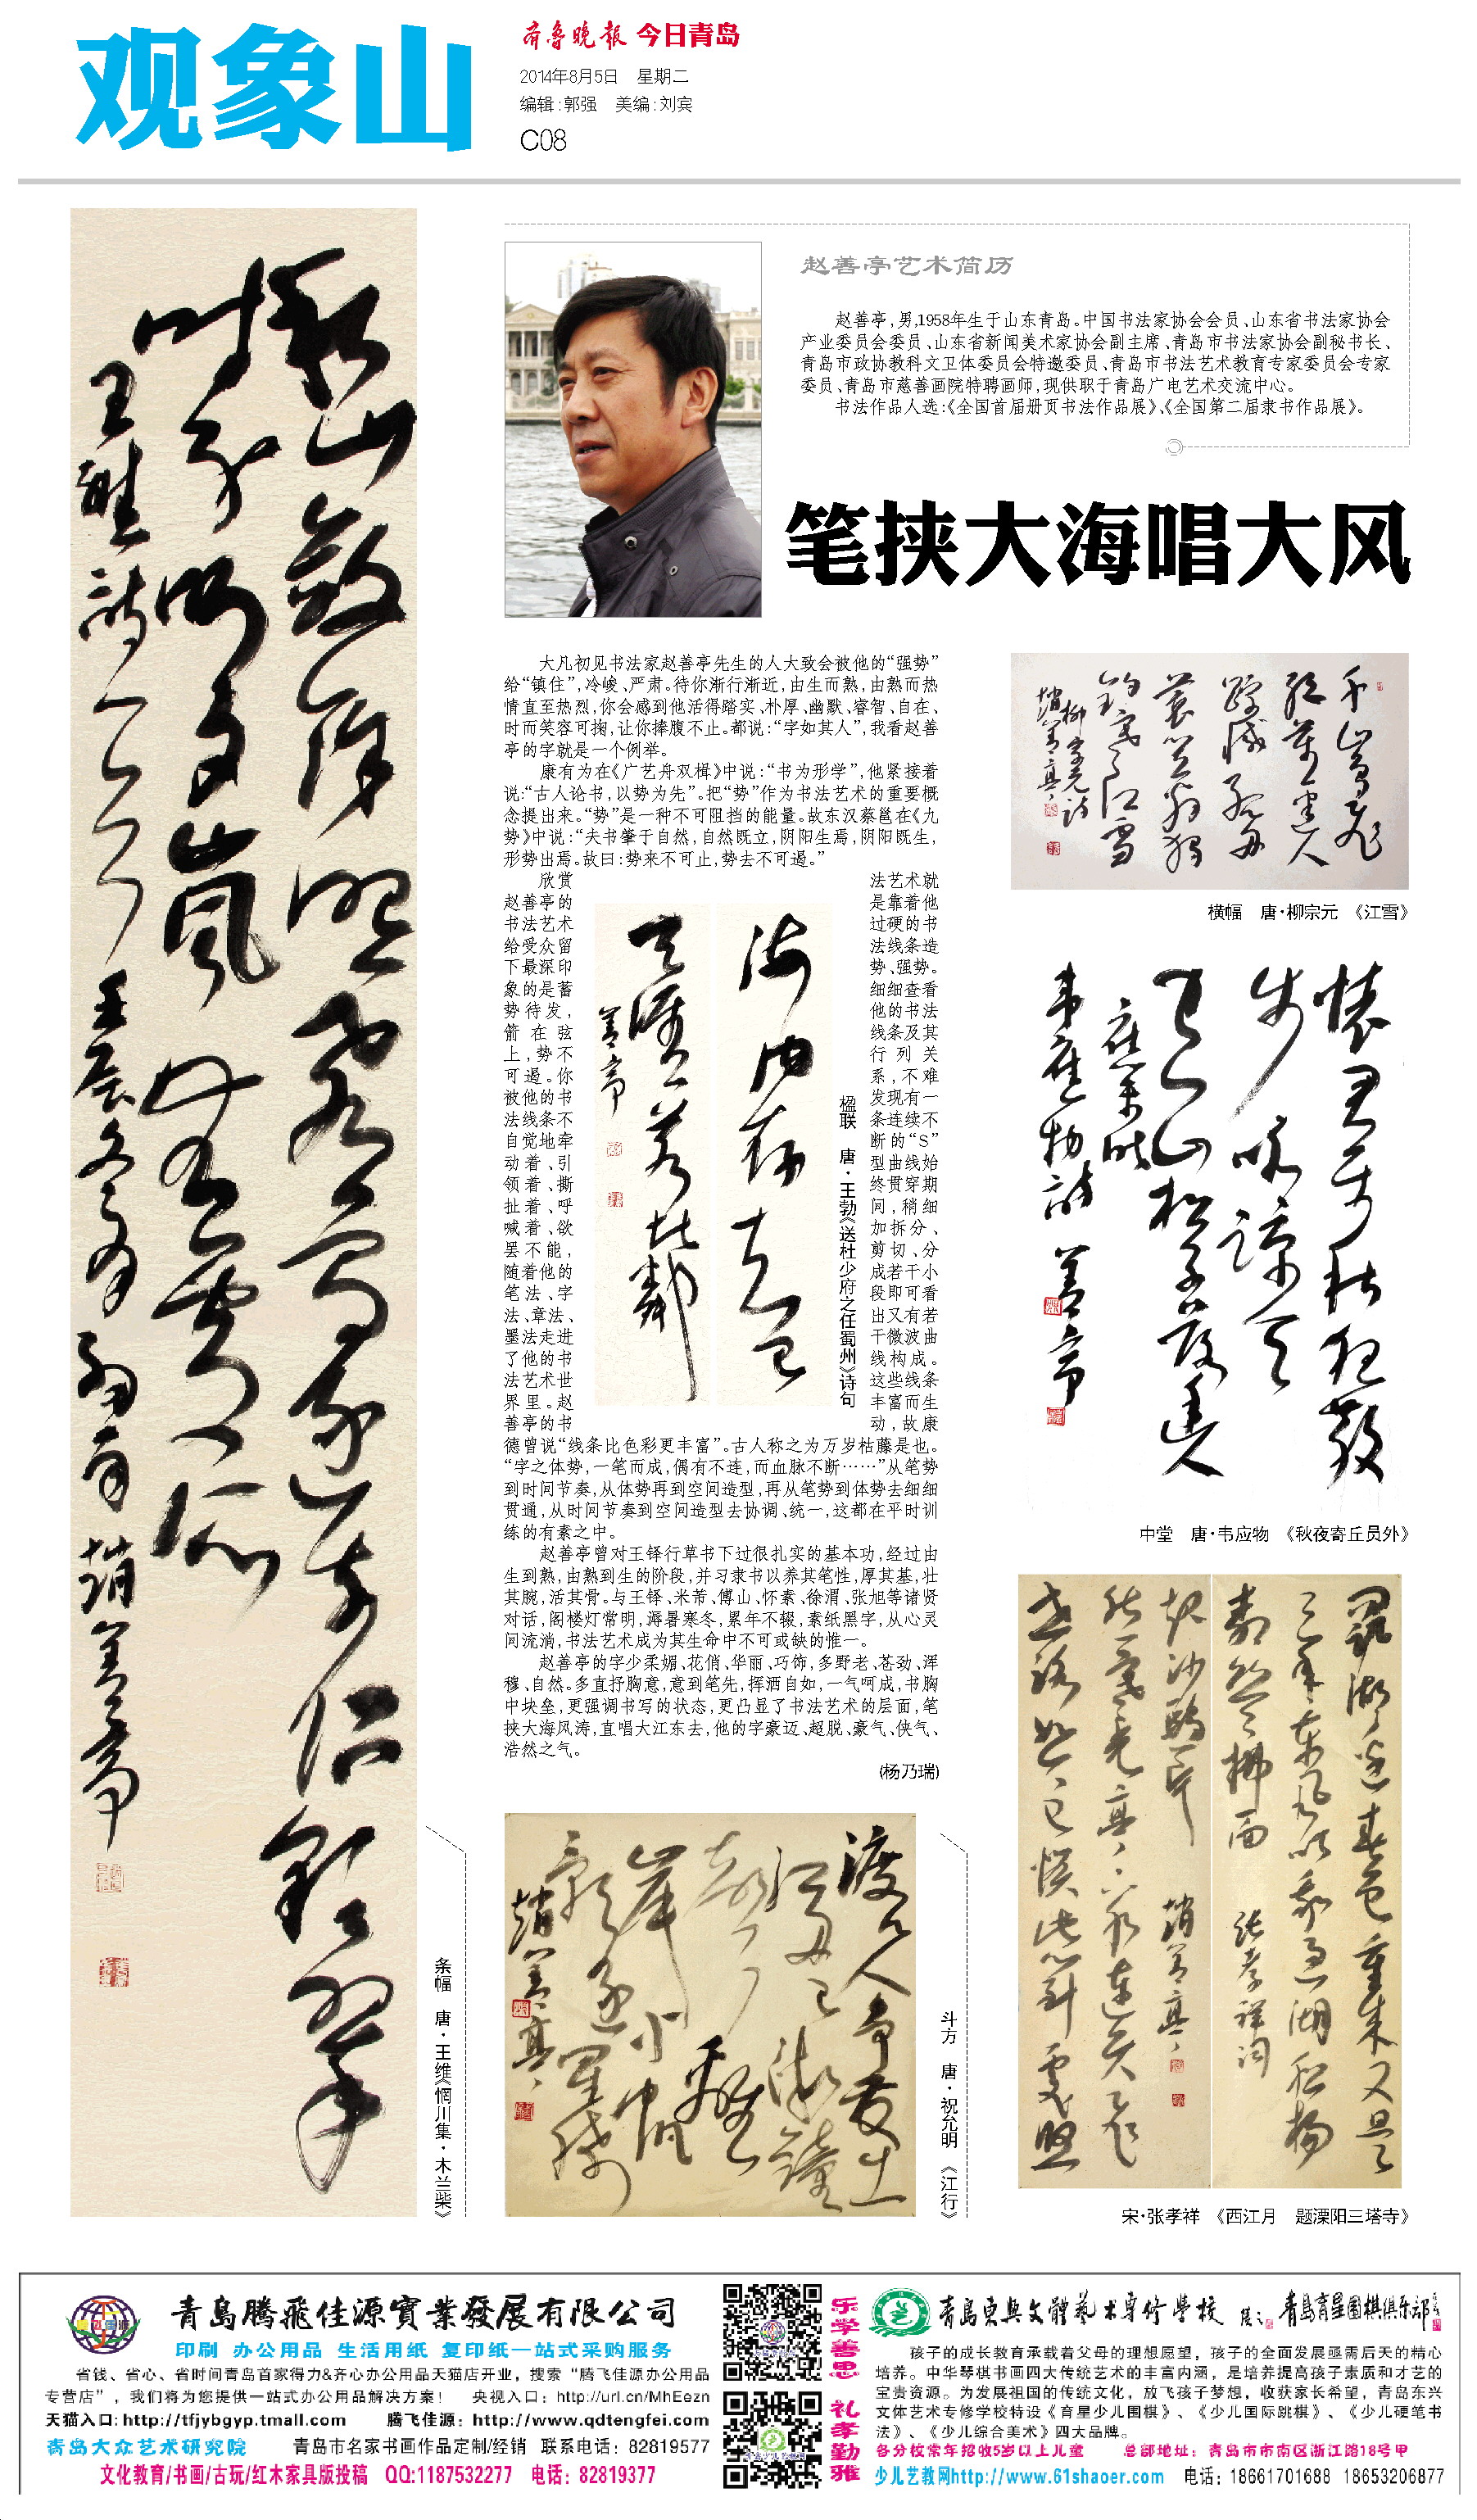 观象山
齐鲁晚报 今日青岛
2014年8月5日 星期二
编辑:郭强 美编:刘宾
C08
赵善亭艺术简历
赵善亭,男,1958年生于山东青岛。中国书法家协会会员、山东省书法家协会
产业委员会委员、山东省新闻美术家协会副主席、青岛市书法家协会副秘书长、
青岛市政协教科文卫体委员会特邀委员、青岛市书法艺术教育专家委员会专家
委员、青岛市慈善画院特聘画师,现供职于青岛广电艺术交流中心。
书法作品入选:《全国首届册页书法作品展》、《全国第二届隶书作品展》。
笔挟大海唱大风
大凡初见书法家赵善亭先生的人大致会被他的“强势”
给“镇住”,冷峻、严肃。待你渐行渐近,由生而熟,由熟而热
情直至热烈,你会感到他活得踏实、朴厚、幽默、睿智、自在、
时而笑容可掬,让你捧腹不止。都说:“字如其人”,我看赵善
亭的字就是一个例举。
康有为在《广艺舟双楫》中说:“书为形学”,他紧接着
说:“古人论书,以势为先”。把“势”作为书法艺术的重要概
念提出来。“势”是一种不可阻挡的能量。故东汉蔡邕在《九
势》中说:“夫书肇于自然,自然既立,阴阳生焉,阴阳既生,
形势出焉。故曰:势来不可止,势去不可遏。”
欣赏
赵善亭的
书法艺术
给受众留
下最深印
象的是蓄
势待发,
箭在弦
上,势不
可遏。你
被他的书
法线条不
自觉地牵
动着、引
领着、撕
扯着、呼
喊着、欲
罢不能,
随着他的
笔法、字
法、章法、
墨法走进
了他的书
法艺术世
界里。赵
善亭的书
法艺术就
是靠着他
过硬的书
法线条造
势、强势。
细细查看
他的书法
线条及其
行列关
系,不难
发现有一
条连续不
断的“S”
型曲线始
终贯穿期
间,稍细
加拆分、
剪切、分
成若干小
段即可看
出又有若
干微波曲
线构成。
这些线条
丰富而生
动,故康
德曾说“线条比色彩更丰富”。古人称之为万岁枯藤是也。
“字之体势,一笔而成,偶有不连,而血脉不断……”从笔势
到时间节奏,从体势再到空间造型,再从笔势到体势去细细
贯通,从时间节奏到空间造型去协调、统一,这都在平时训
练的有素之中。
赵善亭曾对王铎行草书下过很扎实的基本功,经过由
生到熟,由熟到生的阶段,并习隶书以养其笔性,厚其基,壮
其腕,活其骨。与王铎、米芾、傅山、怀素、徐渭、张旭等诸贤
对话,阁楼灯常明,溽暑寒冬,累年不辍,素纸黑字,从心灵
间流淌,书法艺术成为其生命中不可或缺的惟一。
赵善亭的字少柔媚、花俏、华丽、巧饰,多野老、苍劲、浑
穆、自然。多直抒胸意,意到笔先,挥洒自如,一气呵成,书胸
中块垒,更强调书写的状态,更凸显了书法艺术的层面,笔
挟大海风涛,直唱大江东去,他的字豪迈、超脱、豪气、侠气、
浩然之气。
(杨乃瑞)
楹联 唐·王勃《送杜少府之任蜀州》诗句
海内存知己
天涯若比邻
善亭
千山鸟飞
绝万径人
踪灭孤舟
蓑笠翁独
钓寒江雪
柳宗元诗
赵善亭
横幅 唐·柳宗元 《江雪》
怀君属秋夜散
步咏凉天
空山松子落幽人
应未眠
韦应物诗 善亭
中堂 唐·韦应物 《秋夜寄丘员外》
问讯湖边春色重来又是
三年东风吹我过湖船杨
柳丝丝拂面 张孝祥词
世路如今已惯此心到处悠
然寒光亭下水连天飞
起沙鸥一片 赵善亭
宋·张孝祥 《西江月 题溧阳三塔寺》
秋山敛余照飞鸟逐前侣彩翠
时分明夕岚无处所
王维诗一首 壬辰冬月 赵善亭
条幅 唐·王维《惘川集·木兰柴》
渡人争
赵善亭
斗方 唐·祝允明 《江行》
青岛腾飞佳源實業發展有限公司
印刷 办公用品 生活用纸 复印纸一站式采购服务
省钱、省心、省时间青岛首家得力&齐心办公用品天猫店开业,搜索“腾飞佳源办公用品
专营店”,我们将为您提供一站式办公用品解决方案! 央视入口:http://url.cn/MhEezn
天猫入口:http://tfjybgyp.tmall.com 腾飞佳源:http://www.qdtengfei.com
青岛大众艺术研究院 青岛市名家书画作品定制/经销 联系电话:82819577
文化教育/书画/古玩/红木家具版投稿 QQ:1187532277 电话:82819377
乐学善思 礼孝勤雅
青岛東興文體藝术專修學校 青島育星圍棋俱乐部
孩子的成长教育承载着父母的理想愿望,孩子的全面发展亟需后天的精心
培养。中华琴棋书画四大传统艺术的丰富内涵,是培养提高孩子素质和才艺的
宝贵资源。为发展祖国的传统文化,放飞孩子梦想,收获家长希望,青岛东兴
文体艺术专修学校特设《育星少儿围棋》、《少儿国际跳棋》、《少儿硬笔书
法》、《少儿综合美术》四大品牌。
各分校常年招收5岁以上儿童 总部地址:青岛市市南区浙江路18号甲
少儿艺教网http://www.61shaoer.com 电话:18661701688 18653206877